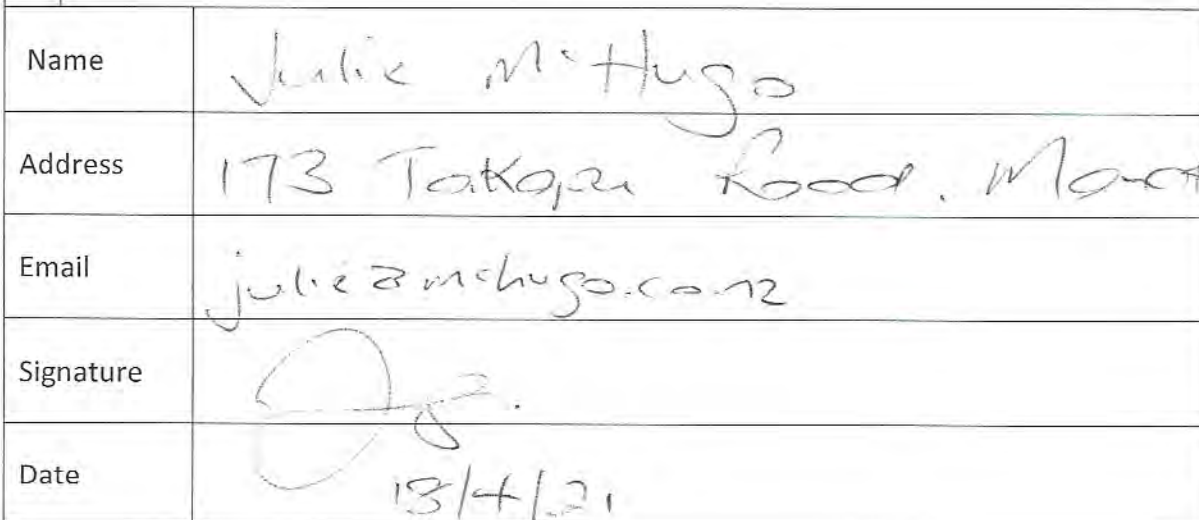 Name Julie McHugo
Address 173 Takapu Road. 
Email julie@mchugo.co.nz
Signature
Date /4/21